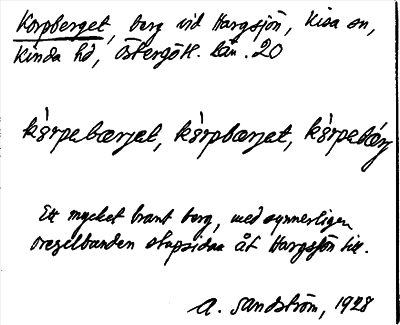 Korpberget, berg vid Hargsjön, Kisa sn,
Kinda hd, Östergötl. län. 20
kò̀rpebærjet, kò̀rpbærjet, kò̀rpebǽrj
Ett mycket brant berg, med synnerligen
oregelbunden stupsidan åt Hargsjön till.
A. Sandström, 1928